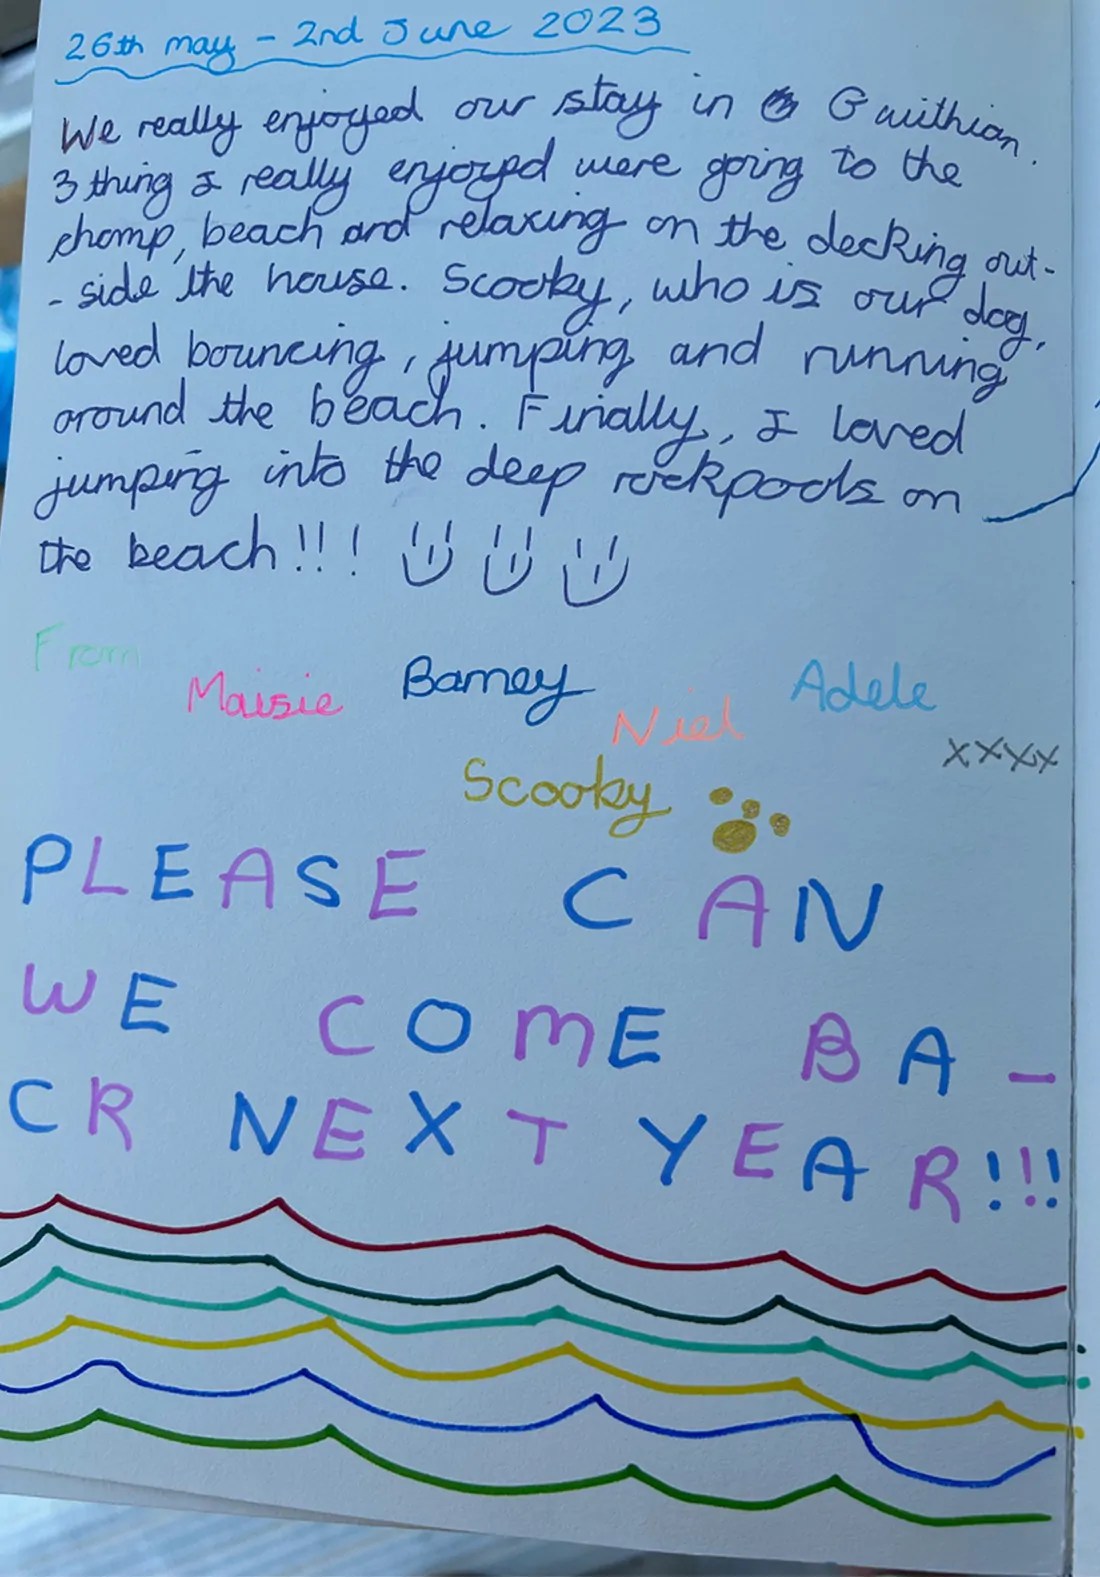 26th may - 2nd June 2023
We really enjoyed our stay in Gwithian.
3 thing I really enjoyed were going to the
chomp, beach and relaxing on the decking out-
- side the house. Scooby, who is our dog,
loved bouncing, jumping and running
around the beach. Finally, I loved
jumping into the deep rockpools on
the beach!!!
From
Maisie Barney Niel Adele
xxxx
Scooby
PLEASE CAN
WE COME BA-
CK NEXT YEAR!!!